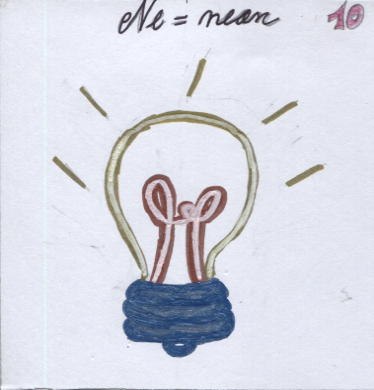 Ne = neon 10